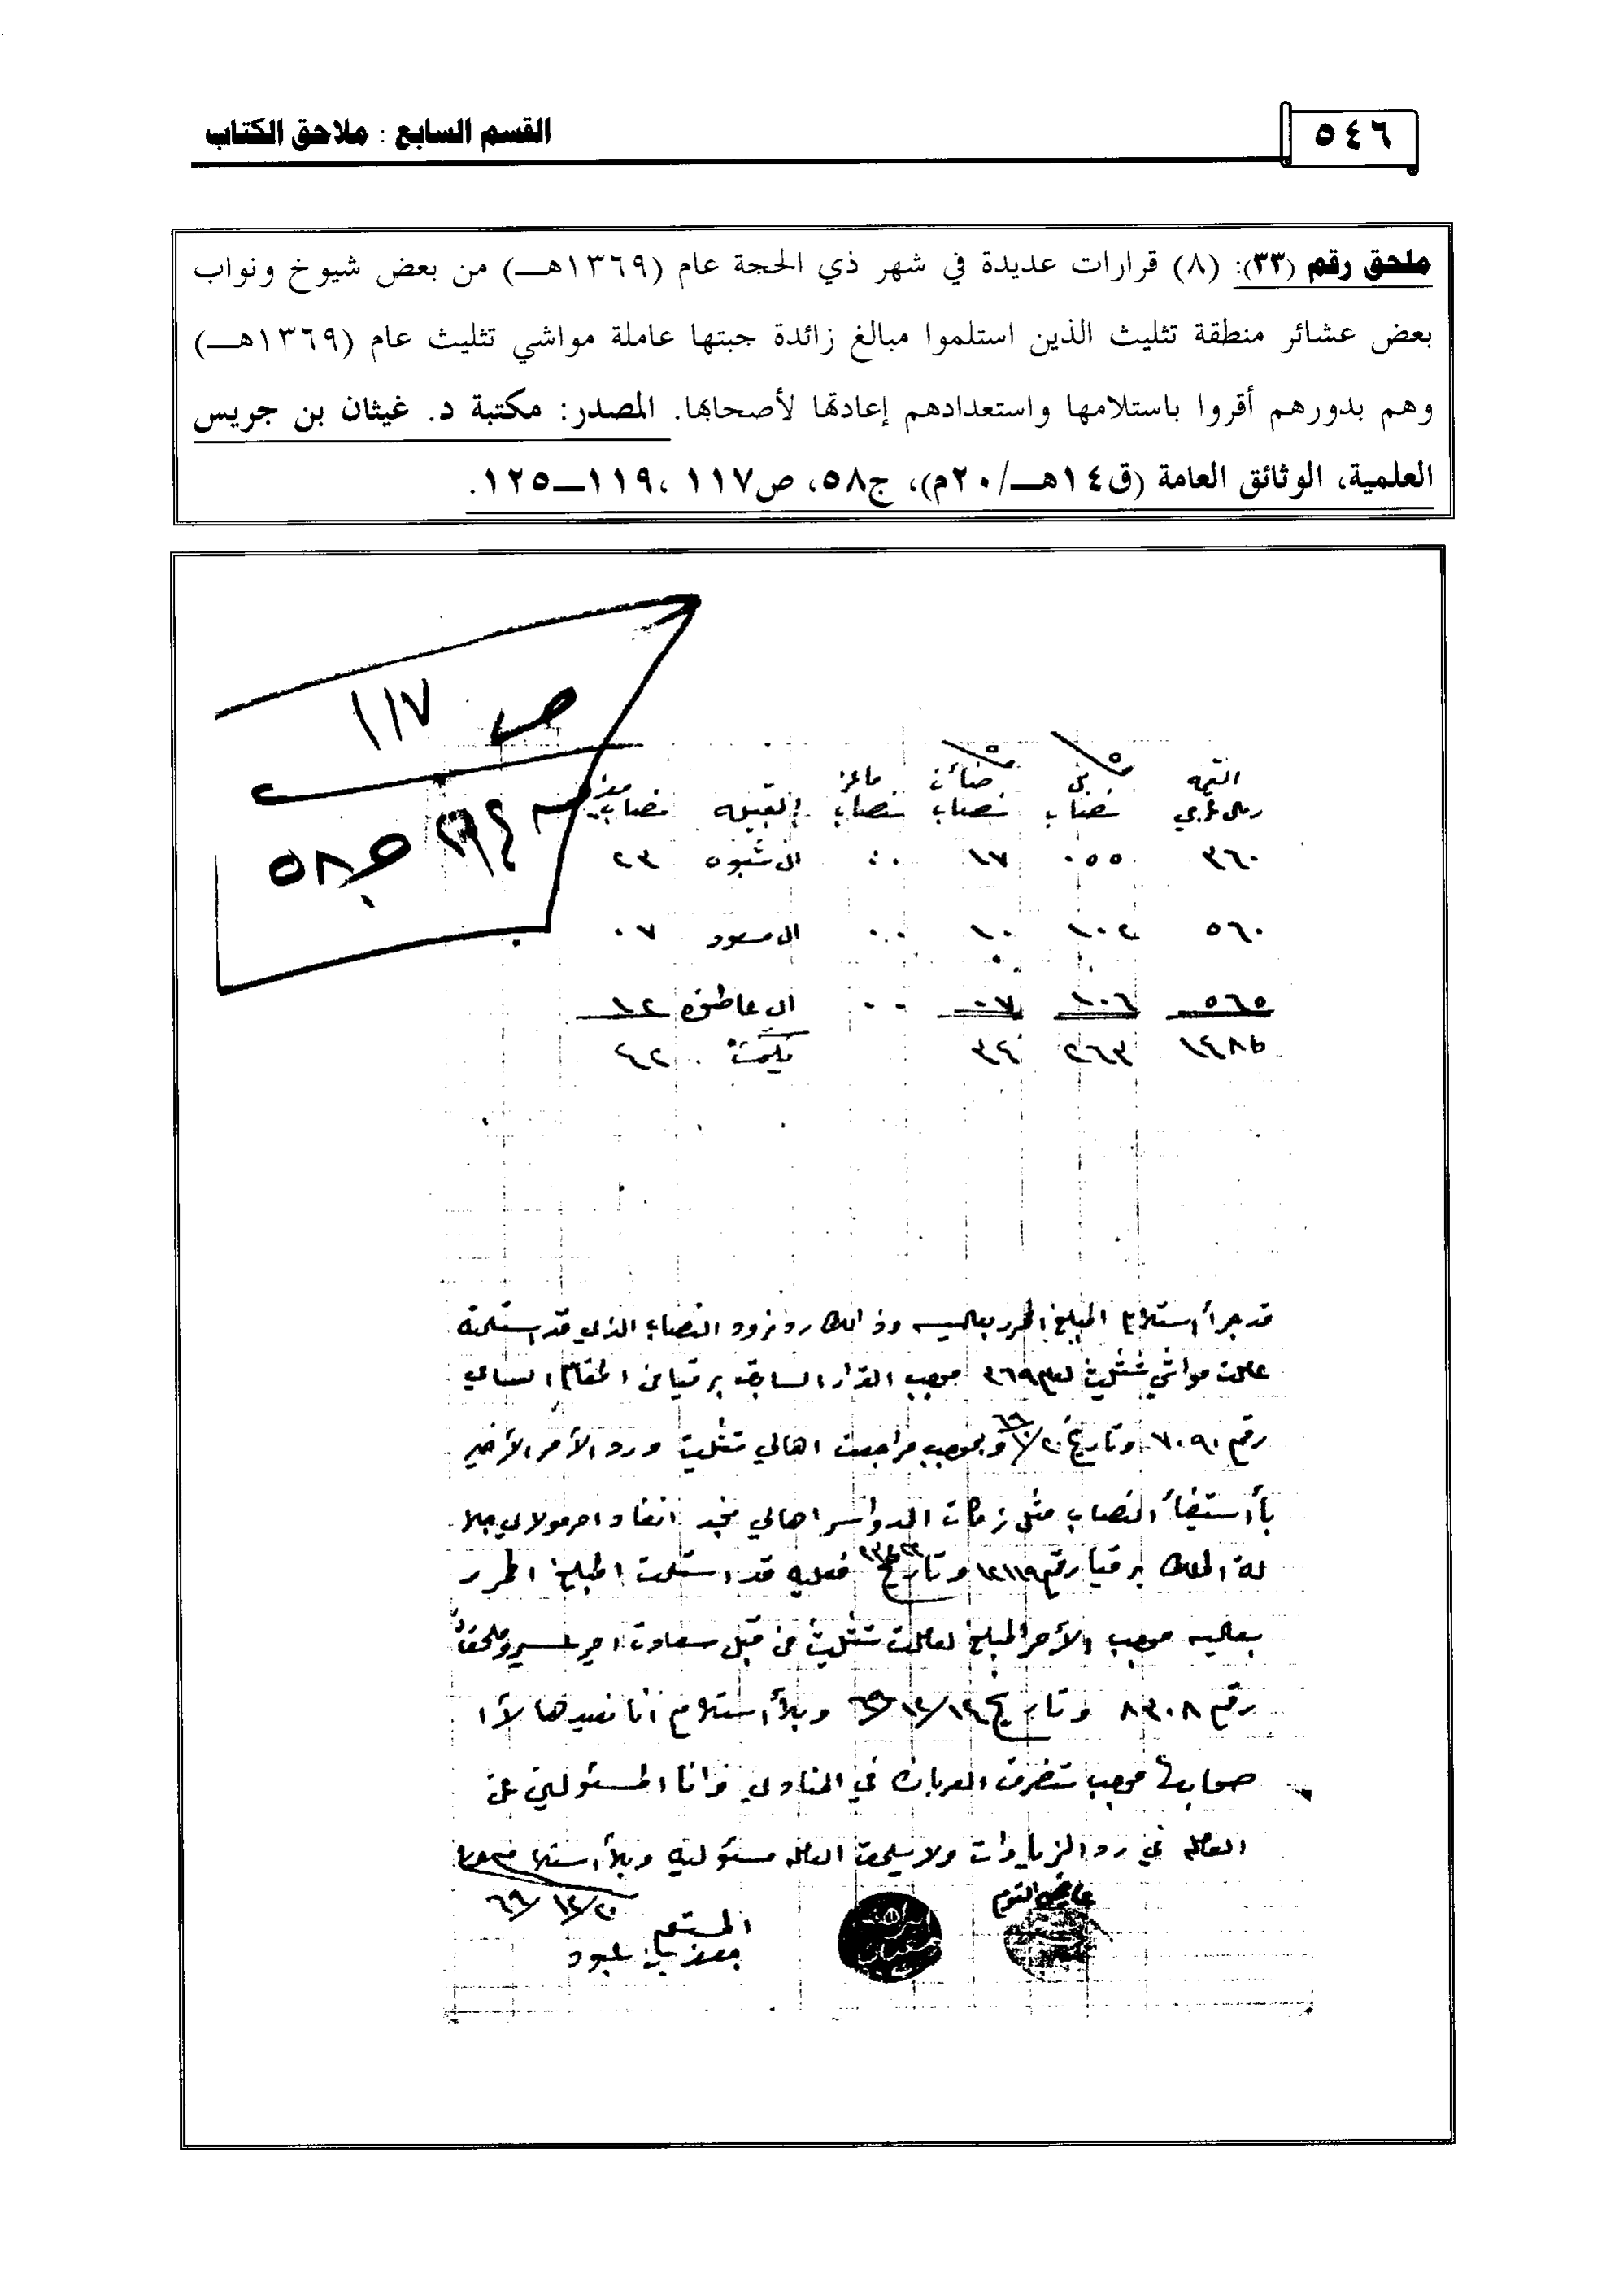 ٥٤٦
القسم السابع : ملاحق الكتاب
ملحق رقم (٣٣): (٨) قرارات عديدة في شهر ذي الحجة عام (١٣٦٩هـــ) من بعض شيوخ ونواب
بعض عشائر منطقة تثليث الذين استلموا مبالغ زائدة جبتها عاملة مواشي تثليث عام (١٣٦٩هـــ)
وهم بدورهم أقروا باستلامها واستعدادهم إعادتها لأصحابها. المصدر: مكتبة د. غيثان بن جريس
العلمية، الوثائق العامة (ق١٤هـــ/٢٠م)، ج٥٨، ص١١٧ ،١١٩ــ١٢٥.
ص ١١٧
ج٥٨
القيمه ضائن ماعز
ريال عربي نصاب نصاب نصاب القبيله نصاب
٣٦٠ ٠٥٥ ١٧ ٠٠ ال شبوه ٢٣
٥٦٠ ١٠٢ ١٠ ٠٠ ال مسعود ٠٧
٥٦٥ ١٠٦ ٠٧ ٠٠ ال عاطف ١٢
١٤٨٥ ٢٦٣ ٣٤ ٤٢
قد جرا أستلام المبلغ المحرر بعاليه وذالك رد زود النصاب الذي قد استلمته
عاملت مواشي تثليث لعام ٣٦٩ موجب القرار السابق برقيا من المقام السامي
رقم ٧٠٩٠ وتاريخ وبموجب مراجعت اهالي تثليث ورد الأمر الأخير
بأستيفأ النصاب مثل زكات الدواسر اهالي نجد انفاد امر مولاي جلا
لة الملك برقيا رقم ١٢١١٩ وتاريخ فعليه قد استلمت المبلغ المحرر
بعاليه موجب الأمر المبلغ لعاملت تثليث من قبل سعادت امير عسير وملحقاته
رقم ٨٣٠٨ وتاريخ ١٤/١٢/٦٩ وبلأ أستلام انا نعيدها لأا
صحابها موجب تضرف العربان في المناوي وانا المسئولين عن
العامله في رد الزيادات ولا يلحق العامله مسئوليه وبلأ أستلام
٢٠/١٢/٦٩
المستلم